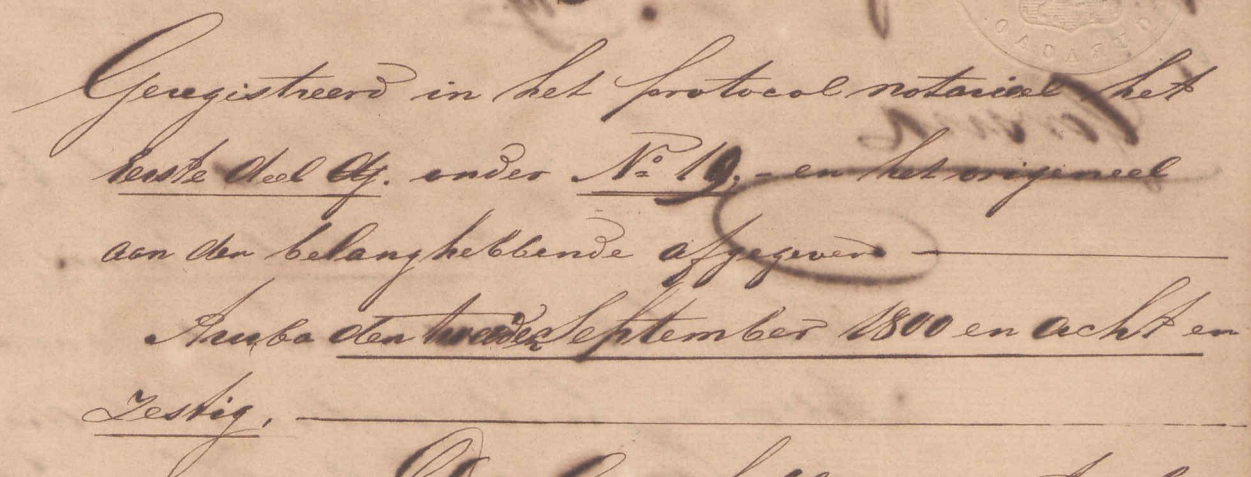 Geregistreerd in het protocol notarieel het
eerste deel dj. onder No. 19. - en het origeneel
aan den belanghebbende afgegeven
Aruba den tweeden September 1800 en acht en
zestig.